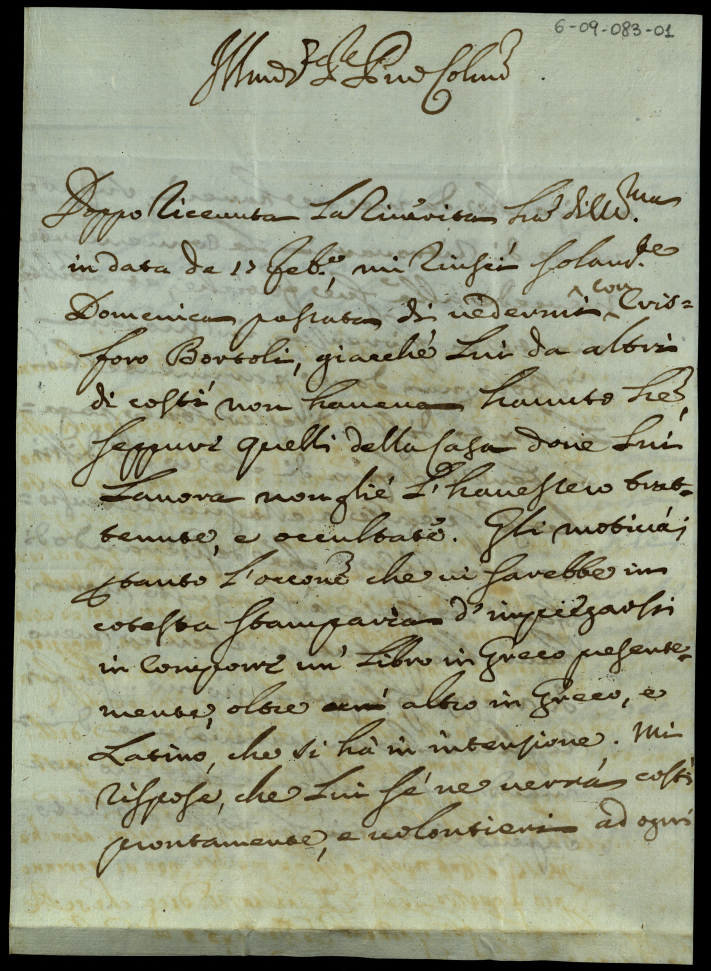 6-09-083-01
Illmo Sig.re Sig.re Pne Colmo
Doppo ricevuta La Riverita ha' di Ill.ma
in data de 17 Feb.o, mi riuscì solam.te
Domenica passata di vedermi con Cris=
foro Bortoli, giacché Lui da altri
di costì non haveva havuto
seppure quelli della Casa dove Lui
Lavora non glié L'havessero trat=
tenute, e occultate. Gli motivai
ptanto l'occone che vi sarebbe in
cotesta stamparia d'impiegarsi
in Comporre un' Libro in Greco presente=
mente, oltre altro in Greco, e
Latino, che si hà in intensione. Mi
rispose, che Lui sé ne verrà costì
prontamente, e volontieri ad ogni